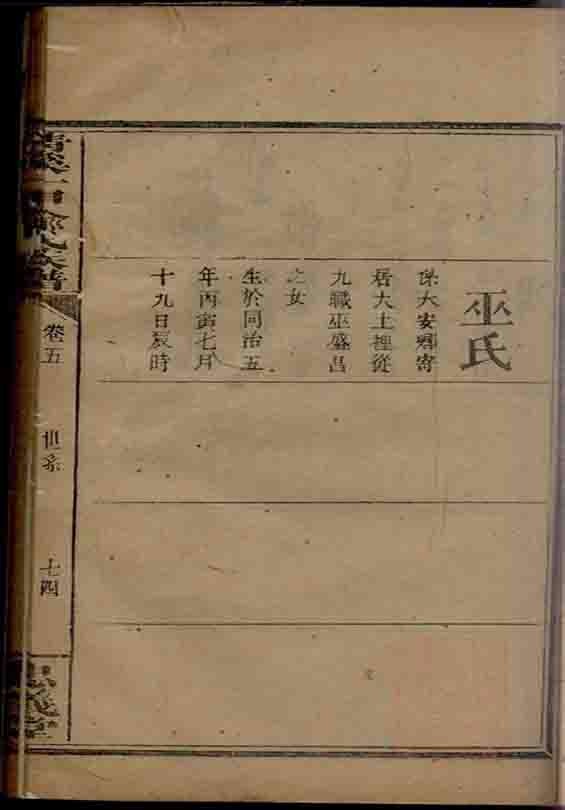 巫氏
係大安鄉寄
居大土裡從
九職巫盛昌
之女
生於同治五
年丙寅七月
十九日辰時
卷五
世系
七四